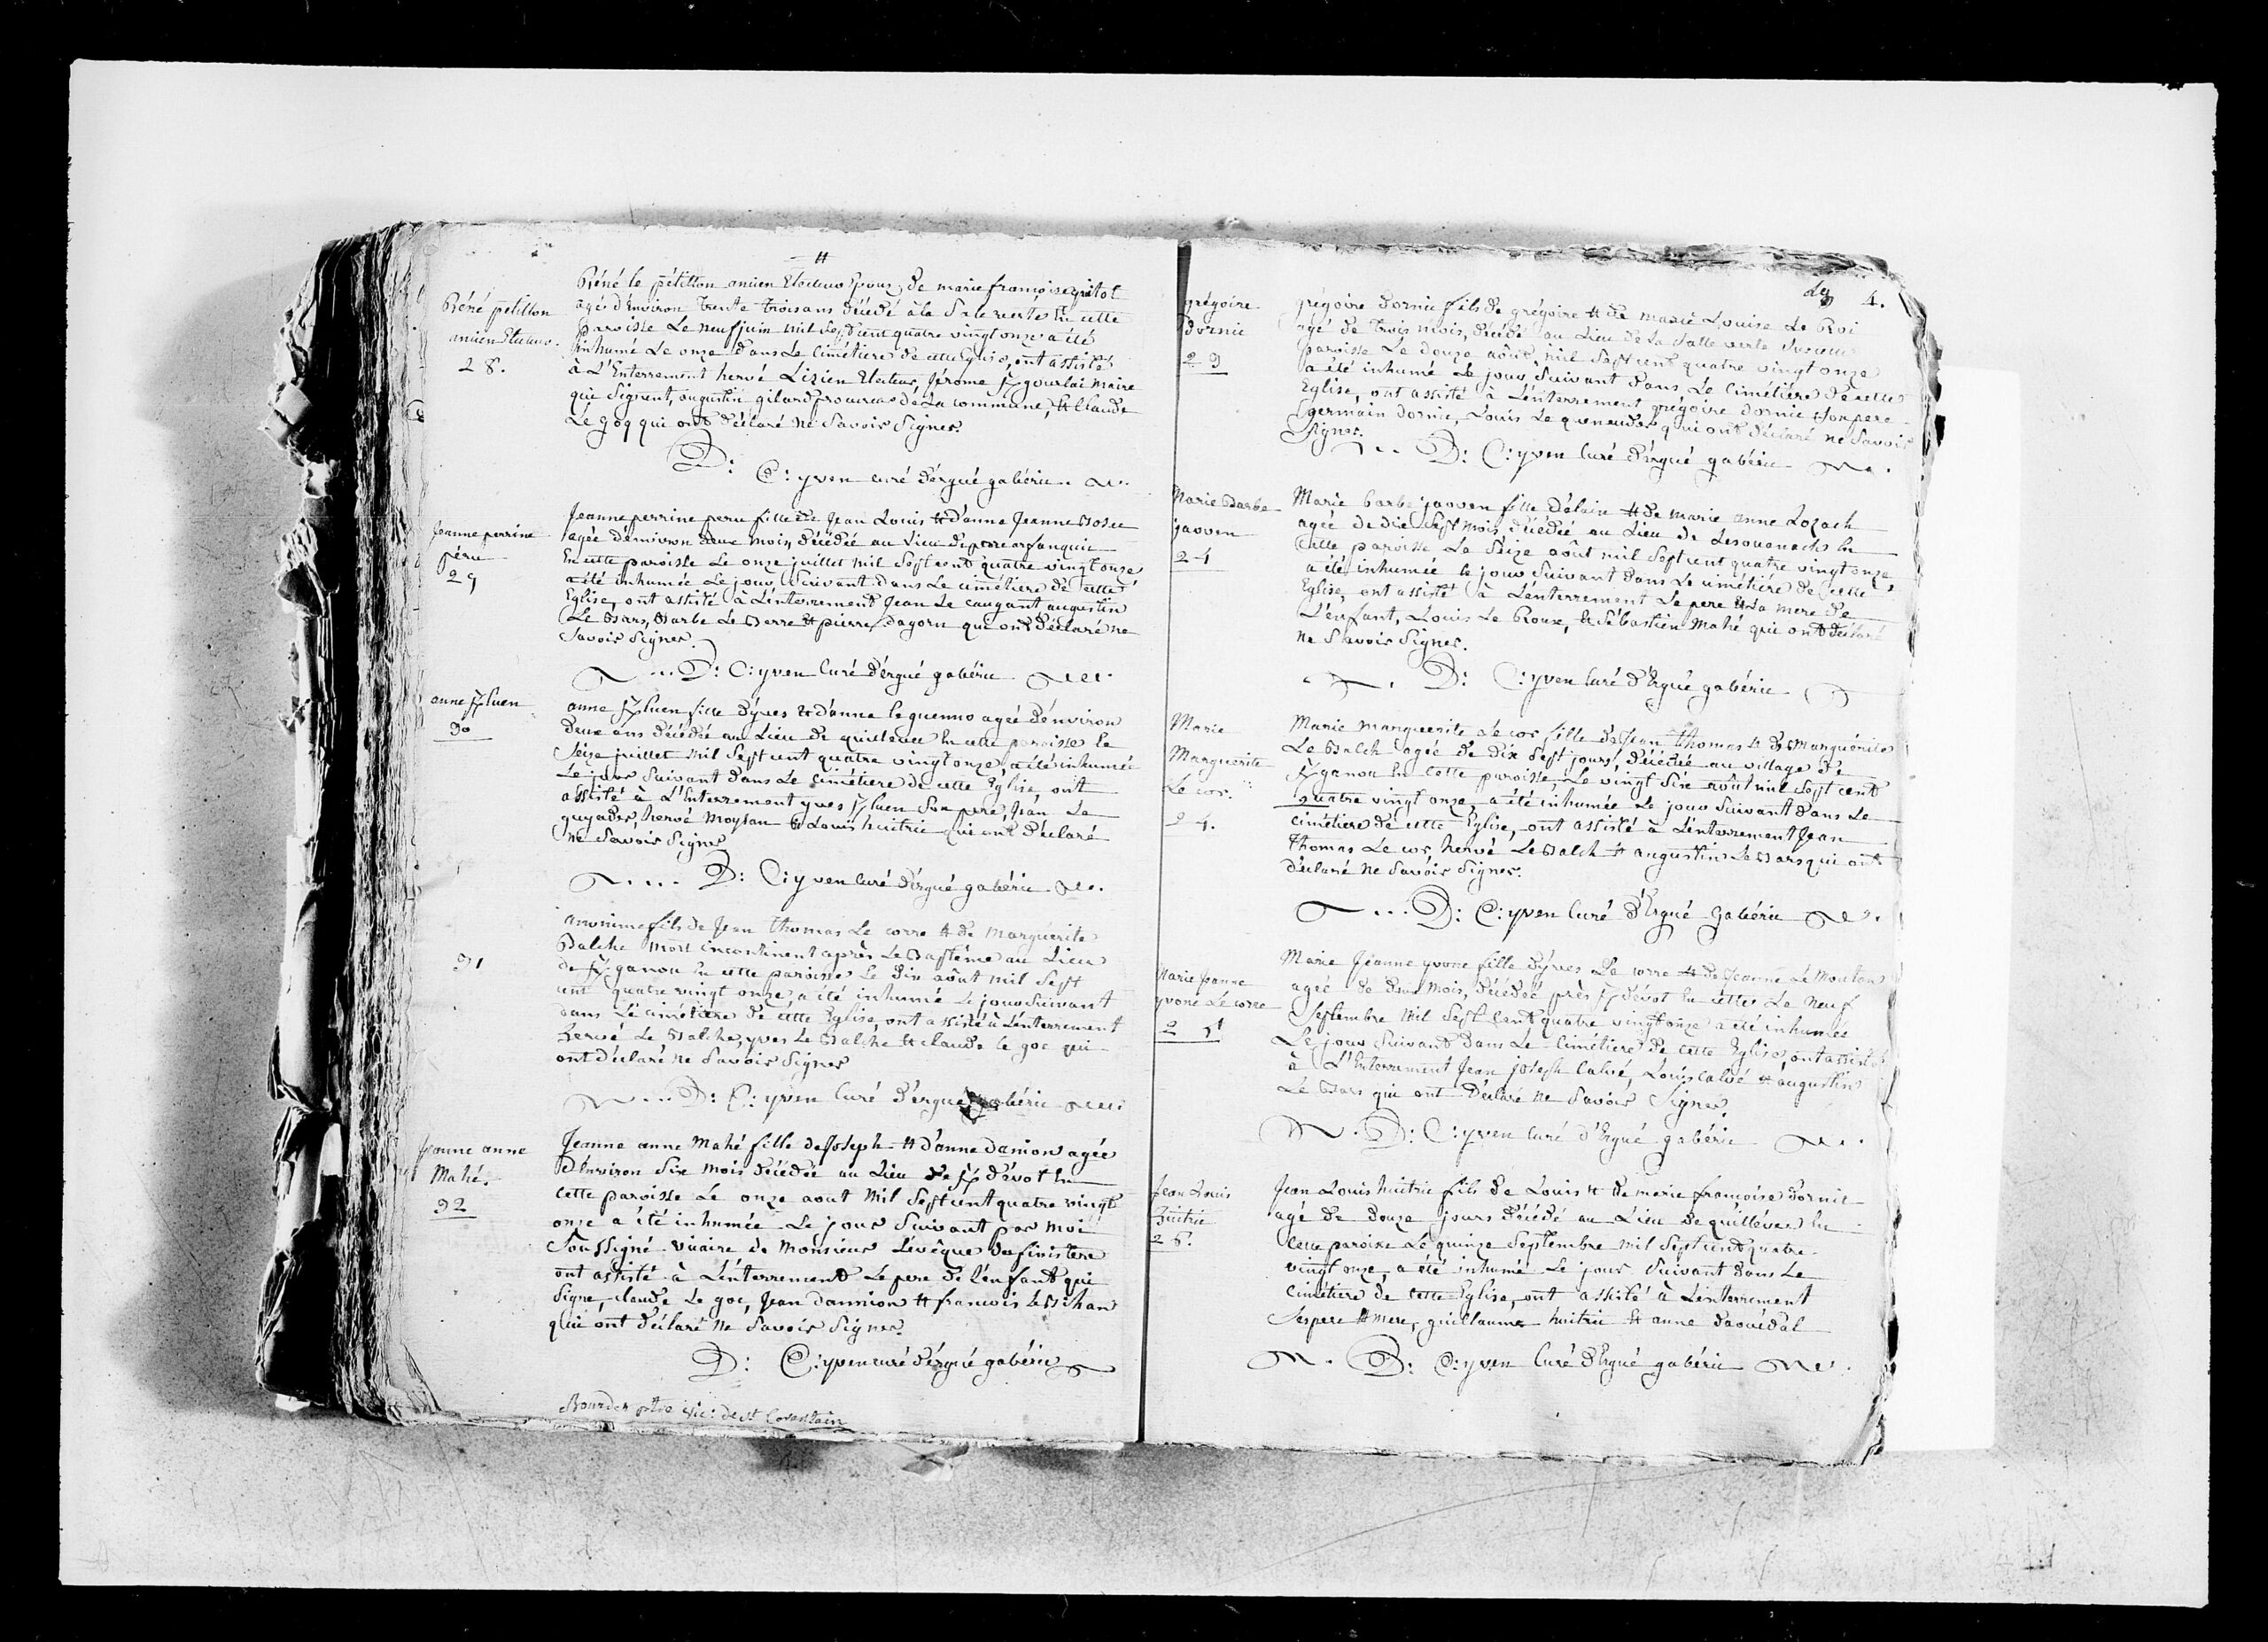 Réné petillon
ancien Electeur.
28.
Réné le pétillon ancien Electeur Epoux de marie françoise gritot
agés d'Environ trente trois ans décédé à la Sale verte En cette
paroisse Le neuf juin mil Sept cent quatre vingt onze a été
inhumé Le onze dans Le Cimétiere de cette Eglise, ont assisté
à L'Enterrement hervé Lizien Electeur, Jérome K gourlai maire
qui Signent, augustin gilard procureur de La commune, & Claude
Le gog qui ont déclaré ne Savoir Signer.
D:
C: yven curé d'érgué gabéric
Jeanne perrine
péru
29
Jeanne perrine peru fille de Jean Louis & d'anne Jeanne
agée d'énviron deux mois, décédée au Lieu de
En cette paroisse Le onze juillet mil Sept cent quatre vingt onze
a été inhumée Le jour Suivant dans Le cimétiere de cette
Eglise, ont assisté à L'énterrement Jean Le caugant augustin
Le Bars, Barbe Le Berre & pierre Dagorn qui ont déclaré ne
Savoir Signer.
D: C: yven Curé d'érgué gabéric
anne K luen
30
anne K luen fille d'yves & d'anne le guenno agée d'énviron
deux ans décédée au Lieu de quillevec En cette paroisse le
Seize juillet mil Sept cent quatre vingt onze, a été inhumée
Le jour Suivant dans Le Cimétiere de cette Eglise, ont
assisté à L'Enterrement yves K luen Son pere, Jean Le
guyader, hervé Moysan & Louis huitric qui ont déclaré
ne Savoir Signer
D: C: yven Curé d'érgué gabéric
31
anonime fils de Jean thomas Le corre & de marguerite
Balche mort incontinent après Le Baptéme au Lieu
de K ganou En cette paroisse Le Dix août mil Sept
cent quatre vingt onze, a été inhumé Le jour Suivant
dans Lé cimétiere de cette Eglise, ont assisté à L'énterrement
hervé Le Balche, yves Le Balche & claude le goc qui
ont déclaré ne Savoir Signer
D: C: yven Curé d'érgué gabéric
Jeanne anne
Mahé.
32
Jeanne anne Mahé fille de Joseph & d'anne Danion agée
D'énviron Six mois décédée au Lieu de K dévot En
cette paroisse Le onze aout mil Sept cent quatre vingt
onze a été inhumée Le jour Suivant par moi
Soussigné vicaire de Monsieur L'évêque du finistere
ont assisté à L'énterrement Le pere de L'énfant qui
Signe, claude Le goc, Jean Dannion & francois Le Bihan
qui ont déclaré ne Savoir Signer.
D: C: yven curé d'érgué gabéric
Bourder ptre vic: de St Corantain
4.
grégoire
dornic
23
grégoire dornic fils de grégoire & de marie Louise Le Roi
agé de trois mois, décédé au Lieu de La Salle verte
paroisse Le douze août, mil Sept cent quatre vingt onze
a été inhumé Le jour Suivant dans Le Cimétiére de cette
Eglise, ont assisté à L'énterrement grégoire dornic Son pere
germain dornic, Louis Le queneuder qui ont déclaré ne Savoir
Signer.
D: C: yven Curé d'érgué gabéric
Marie Barbe
jaouen
24
Marie barbe jaouen fille d'alain & de marie anne Lozach
agée de dix Sept mois, décédée au Lieu de Lesouanach En
Cette paroisse Le Séize août mil Sept cent quatre vingt onze
a été inhumée le jour Suivant dans Le cimétiére de cette
Eglise, ont assisté à L'énterrement Le pere & La mere de
L'énfant, Louis Le Roux, & Sébastien Mahé qui ont déclaré
ne Savoir Signer.
D: C: yven Curé d'Ergué gabéric
Marie
Marguerite
Le cor.
24.
Marie marguerite Le cor fille de Jean thomas & de Marguérite
Le Balch agée de Dix Sept jours, décédée au village de
K ganou En Cette paroisse, Le vingt Six août mil Sept cent
quatre vingt onze, a été inhumée Le jour Suivant dans Le
cimétiere de cette Eglise, ont assisté à L'énterrement Jean
Thomas Le cor, hervé Le Balch & augustin Le Bars qui ont
déclaré ne Savoir Signer.
D: C: yven Curé d'Ergué gabéric
Marie Jeanne
yvone Le corre
2
Marie Jéanne yvone fille d'yves Le corre & de Jeanne Le Mouton
agée de deux mois, décédée près K dévot En cette Le neuf
Septembre mil Sept Cent quatre vingt onze a été inhumée
Le jour Suivant dans Le Cimétiere de cette Eglise, ont assisté
à L'Enterrement Jean joseph Calvé, Louis calvé & augustin
Lé Bars qui ont déclaré ne Savoir Signer.
D: C: yven Curé d'Ergué gabéric
Jean Louis
huitric
26.
Jean Louis huitric fils de Louis & de marie françoise Dornic
agé de douze jours décédé au Lieu de quillévec En
Cette paroisse Le quinze Septembre mil Sept cent quatre
vingt onze, a été inhumé Le jour Suivant dans Le
Cimétiére de cette Eglise, ont assisté à L'énterrement
Ses pere & mere, guillaume huitric & anne daouédal
D: C: yven Curé d'Ergué gabéric